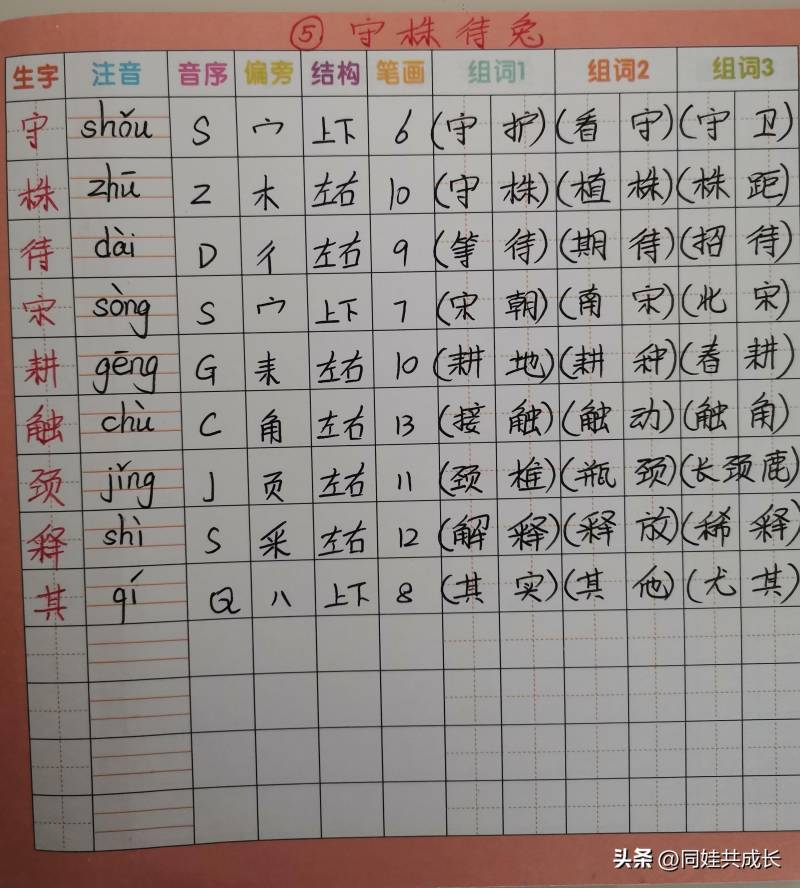 ⑤ 守株待兔
生字 注音 音序 偏旁 结构 笔画 组词1 组词2 组词3
守 shǒu S 宀 上下 6 (守护) (看守) (守卫)
株 zhū Z 木 左右 10 (守株) (植株) (株距)
待 dài D 彳 左右 9 (等待) (期待) (招待)
宋 sòng S 宀 上下 7 (宋朝) (南宋) (北宋)
耕 gēng G 耒 左右 10 (耕地) (耕种) (春耕)
触 chù C 角 左右 13 (接触) (触动) (触角)
颈 jǐng J 页 左右 11 (颈椎) (瓶颈) (长颈鹿)
释 shì S 釆 左右 12 (解释) (释放) (稀释)
其 qí Q 八 上下 8 (其实) (其他) (尤其)
头条 @同娃共成长